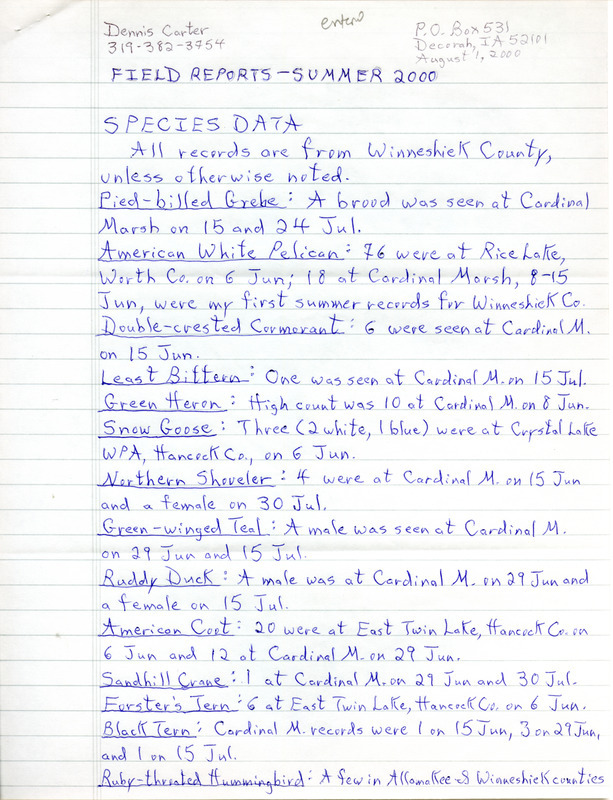 Dennis Carter
319-382-3754
entered
P.O. Box 531
Decorah, IA 52101
August 1, 2000
FIELD REPORTS-SUMMER 2000
SPECIES DATA
All records are from Winneshiek County,
unless otherwise noted.
Pied-billed Grebe: A brood was seen at Cardinal
Marsh on 15 and 24 Jul.
American White Pelican: 76 were at Rice Lake,
Worth Co. on 6 Jun; 18 at Cardinal Marsh, 8-15
Jun, were my first summer records for Winneshiek Co.
Double-crested Cormorant: 6 were seen at Cardinal M.
on 15 Jun.
Least Bittern: One was seen at Cardinal M. on 15 Jul.
Green Heron: High count was 10 at Cardinal M. on 8 Jun.
Snow Goose: Three (2 white, 1 blue) were at Crystal Lake
WPA, Hancock Co., on 6 Jun.
Northern Shoveler: 4 were at Cardinal M. on 15 Jun
and a female on 30 Jul.
Green-winged Teal: A male was seen at Cardinal M.
on 29 Jun and 15 Jul.
Ruddy Duck: A male was at Cardinal M. on 29 Jun and
a female on 15 Jul.
American Coot: 20 were at East Twin Lake, Hancock Co. on
6 Jun and 12 at Cardinal M. on 29 Jun.
Sandhill Crane: 1 at Cardinal M. on 29 Jun and 30 Jul.
Forster's Tern: 6 at East Twin Lake, Hancock Co. on 6 Jun.
Black Tern: Cardinal M. records were 1 on 15 Jun, 3 on 29 Jun,
and 1 on 15 Jul.
Ruby-throated Hummingbird: A few in Allamakee & Winneshiek counties